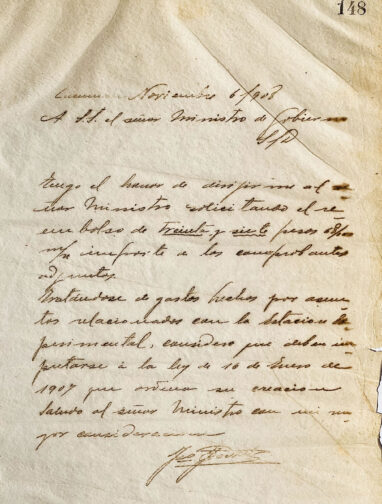 148
Noviembre 6/908
A S.S. el señor Ministro de Gobierno
S/D
Tengo el honor de dirigirme al se-
ñor Ministro solicitando el re-
embolso de treinta y siete pesos
m/n importe a los comprobantes
adjuntos.
Tratándose de gastos hechos por asun-
tos relacionados con la Estacion Ex-
perimental, considero que deben im-
putarse á la ley de 16 de Enero de
1907 que ordena su creacion
Saludo al señor Ministro con mi ma-
yor consideracion